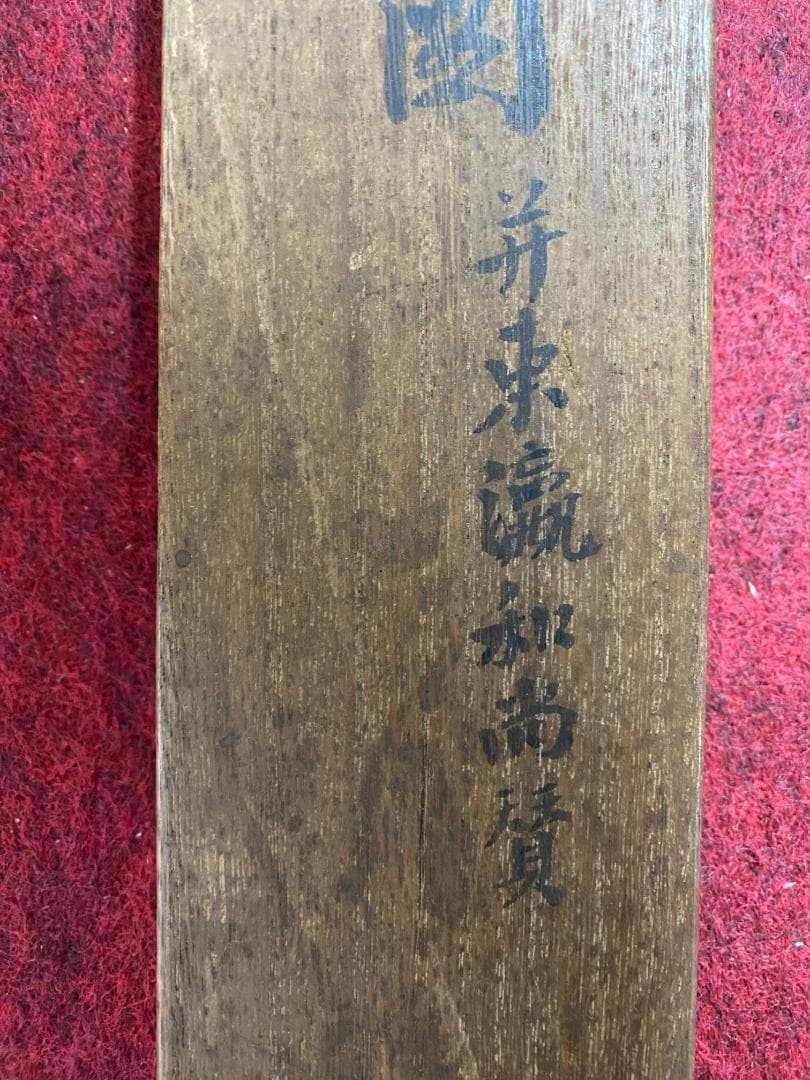 并東瀛和尚賛